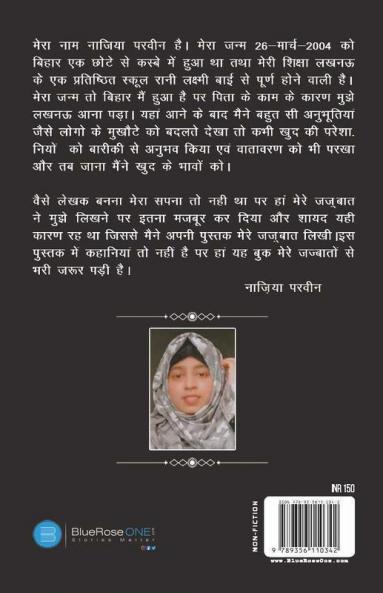 मेरा नाम नाजिया परवीन है। मेरा जन्म 26-मार्च-2004 को
बिहार एक छोटे से कस्बे में हुआ था तथा मेरी शिक्षा लखनऊ
के एक प्रतिष्ठित स्कूल रानी लक्ष्मी बाई से पूर्ण होने वाली है।
मेरा जन्म तो बिहार मैं हुआ है पर पिता के काम के कारण मुझे
लखनऊ आना पड़ा। यहां आने के बाद मैने बहुत सी अनुभूतियां
जैसे लोगो के मुखौटे को बदलते देखा तो कभी खुद की परेशा.
नियों को बारीकी से अनुभव किया एवं वातावरण को भी परखा
और तब जाना मैंने खुद के भावों को।
वैसे लेखक बनना मेरा सपना तो नही था पर हां मेरे जज़्बात
ने मुझे लिखने पर इतना मजबूर कर दिया और शायद यही
कारण रह था जिससे मैने अपनी पुस्तक मेरे जज़्बात लिखी।इस
पुस्तक में कहानियां तो नहीं है पर हां यह बुक मेरे जज्बातों से
भरी जरूर पड़ी है।
नाज़िया परवीन
INR 150
BlueRose ONE
Stories Matter
NON-FICTION
9 789356 110342
www.BlueRoseOne.com